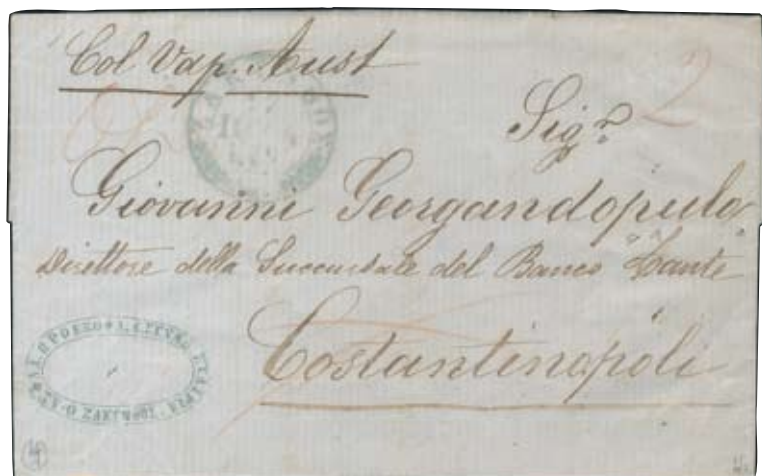 Col Vap. Aust
2
Sigr.
Giovanni Georgandopulo
Direttore della Succursale del Banco
Costantinopoli